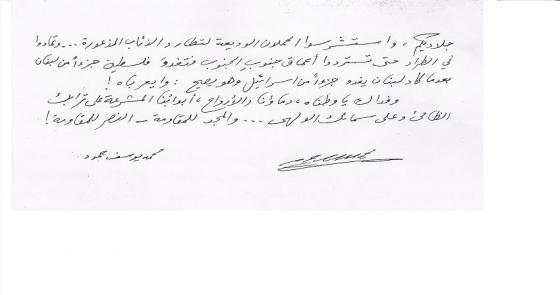 جلاديكم، واستشرسوا الحملان الوديعة لتطارد الذئاب المذعورة ... وتمادوا
في الطراد حتى تستردوا أعماق جنوب الجنوب فتغدو فلسطين جزءاً من لبنان
بعدما كاد لبنان يغدو جزءاً من اسرائيل وهو يصيح : واعرباه !
وفداك يا وطناه، دماؤنا والأرواح، أبوابنا المشرعة على ترابك
الظامئ وعلى سمائك الولهى ... والمجد للمقاومة – النصر للمقاومة !
محمد يوسف حمود